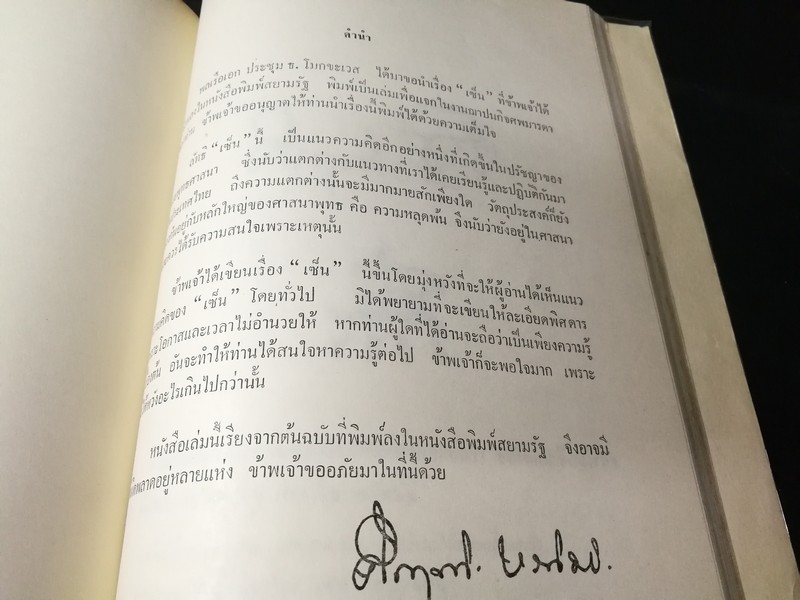 คำนำ
พลเรือเอก ประชุม ธ. โมกขะเวส ได้มาขอนำเรื่อง “ เซ็น ” ที่ข้าพเจ้าได้
ในหนังสือพิมพ์สยามรัฐ พิมพ์เป็นเล่มเพื่อแจกในงานฌาปนกิจศพมารดา
ข้าพเจ้าขออนุญาตให้ท่านนำเรื่องนี้พิมพ์ได้ด้วยความเต็มใจ
ลัทธิ “ เซ็น ” นี้ เป็นแนวความคิดอีกอย่างหนึ่งที่เกิดขึ้นในปรัชญาของ
พุทธศาสนา ซึ่งนับว่าแตกต่างกับแนวทางที่เราได้เคยเรียนรู้และปฏิบัติกันมา
ประเทศไทย ถึงความแตกต่างนั้นจะมีมากมายสักเพียงใด วัตถุประสงค์ก็ยัง
อยู่กับหลักใหญ่ของศาสนาพุทธ คือ ความหลุดพ้น จึงนับว่ายังอยู่ในศาสนา
ได้รับความสนใจเพราะเหตุนั้น
ข้าพเจ้าได้เขียนเรื่อง “ เซ็น ” นี้ขึ้นโดยมุ่งหวังที่จะให้ผู้อ่านได้เห็นแนว
คิดของ “ เซ็น ” โดยทั่วไป มิได้พยายามที่จะเขียนให้ละเอียดพิสดาร
โอกาสและเวลาไม่อำนวยให้ หากท่านผู้ใดที่ได้อ่านจะถือว่าเป็นเพียงความรู้
อันจะทำให้ท่านได้สนใจหาความรู้ต่อไป ข้าพเจ้าก็จะพอใจมาก เพราะ
หวังอะไรเกินไปกว่านั้น
หนังสือเล่มนี้เรียงจากต้นฉบับที่พิมพ์ลงในหนังสือพิมพ์สยามรัฐ จึงอาจมี
พลาดอยู่หลายแห่ง ข้าพเจ้าขออภัยมาในที่นี้ด้วย